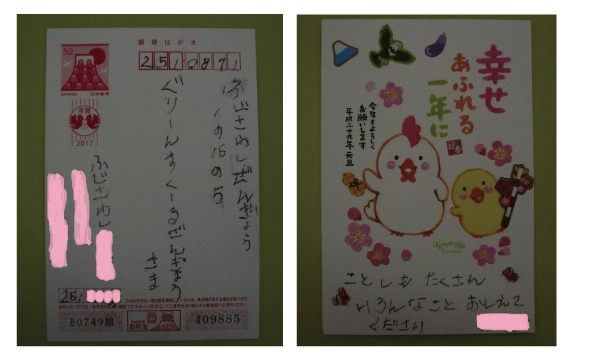 郵便はがき
52
251-0871
2017
ふじさわしぜんぎょう
1の16の5
ぐりーんすくーるぜんぎょう
さま
ふじさわし
251
B0749組
109885
幸せ
あふれる
一年に
今年もよろしく
お願いします
平成二十九年 元旦
ことしも たくさん
いろんなこと おしえて
ください